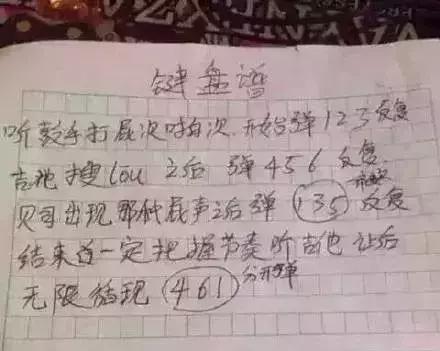 键盘谱
听鼓手打屁次吋自次 开始弹123反复
吉他 搜Lou 之后 弹456反复
贝司出现那种屁声之后弹 135 反复
结束道一定把握节奏听吉他 让后
无限循现 461 分开弹